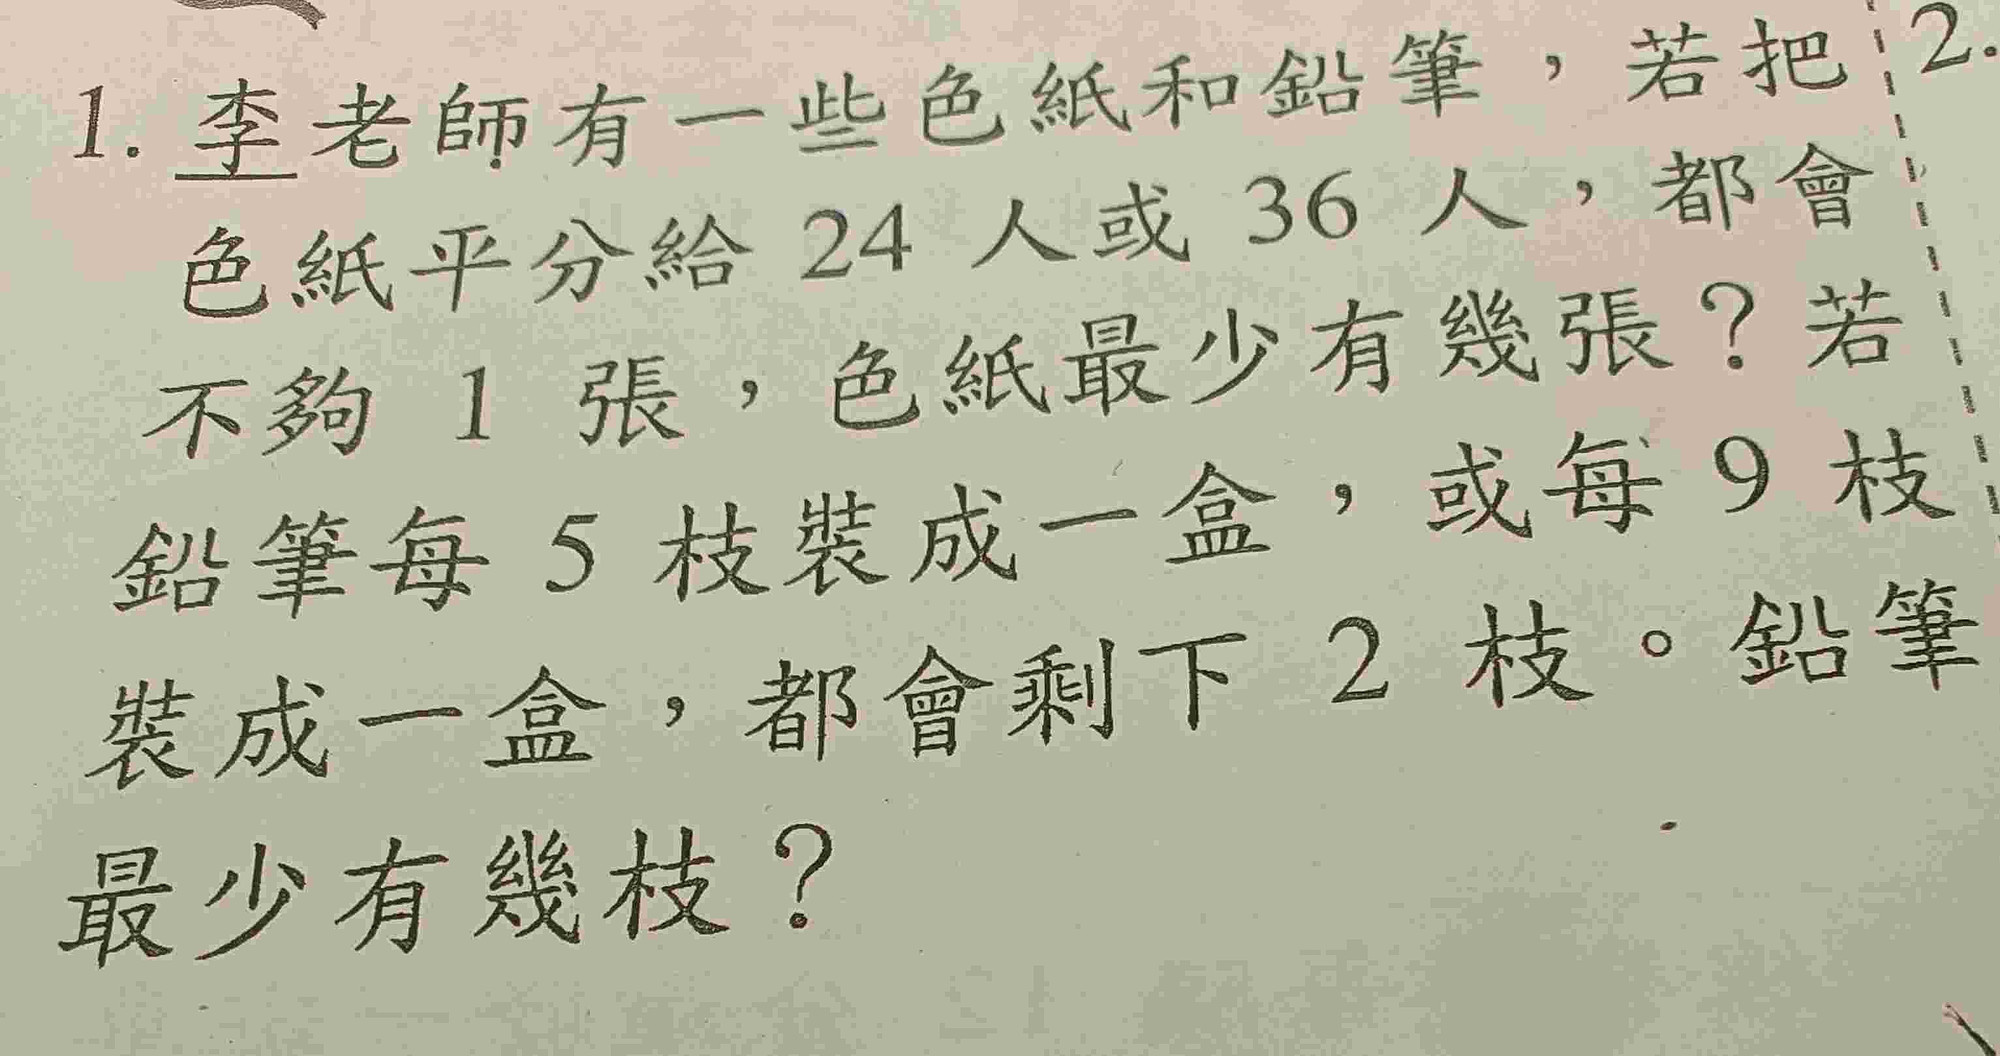 1. 李老師有一些色紙和鉛筆，若把
色紙平分給 24 人或 36 人，都會
不夠 1 張，色紙最少有幾張？若
鉛筆每 5 枝裝成一盒，或每 9 枝
裝成一盒，都會剩下 2 枝。鉛筆
最少有幾枝？
2.